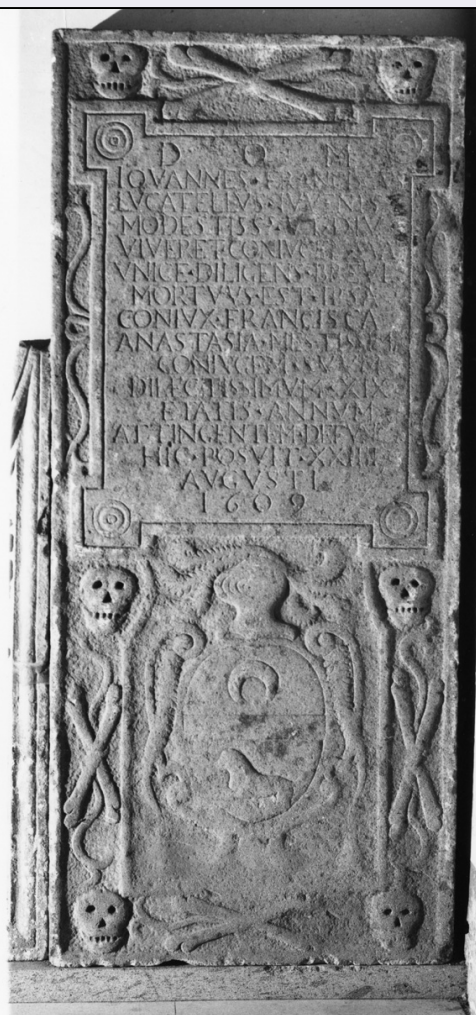 D O M
IOVANNES
LVCATELIVS IVVENIS
MODESTISS
VIVERET CONIVGEM
VNICE DILIGENS
MORTVVS EST IPSA
CONIVX FRANCISCA
ANASTASIA MESTISSIMA
CONIVGEM SVVM
DILECTISSIMVM XIX
ETATIS ANNVM
ATTINGENTEM DEFVNC
HIC POSVIT XXIIII
AVGVSTI
1609